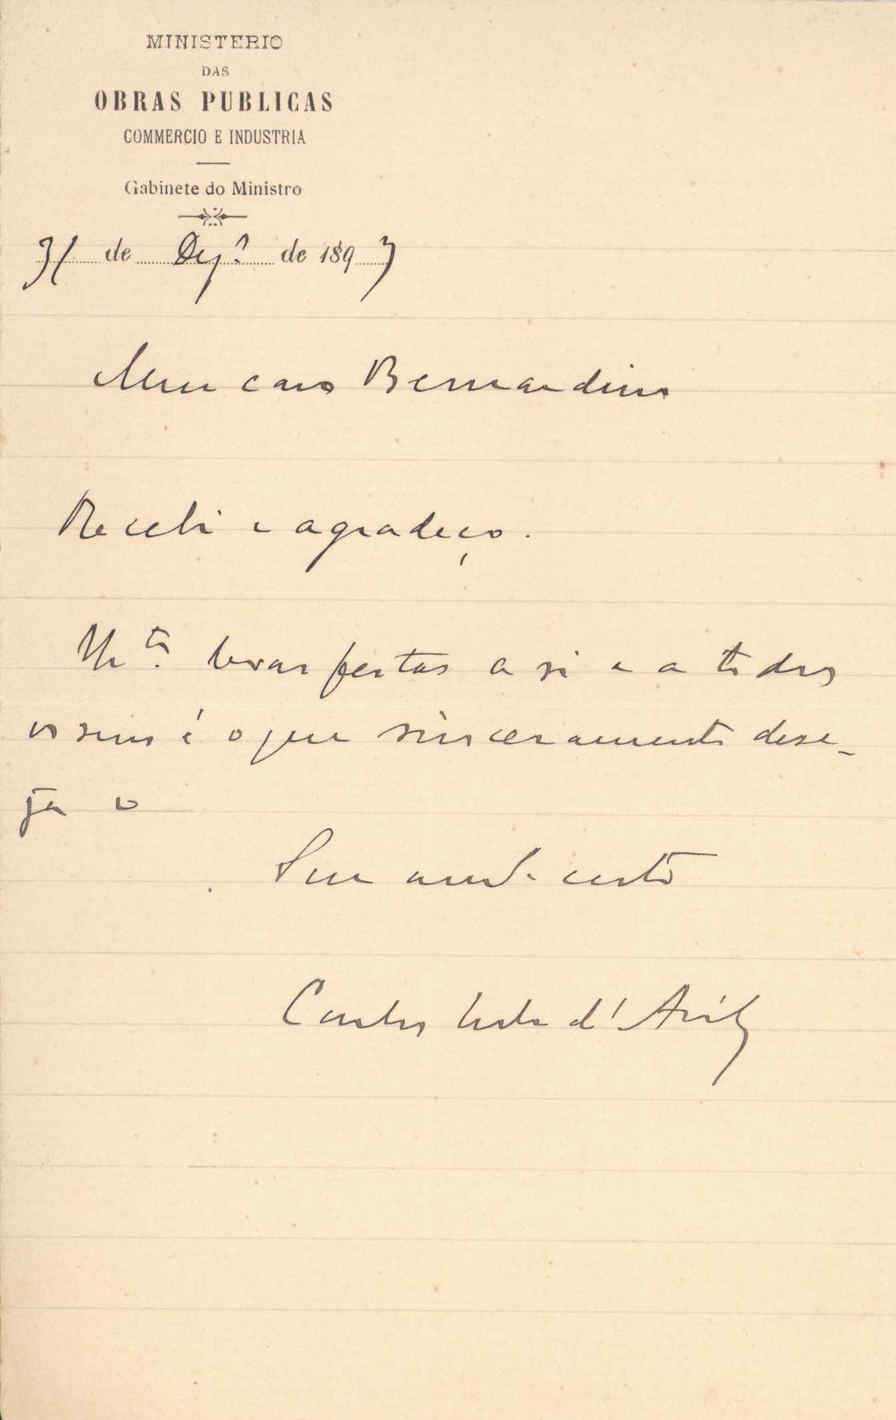 MINISTERIO
DAS
OBRAS PUBLICAS
COMMERCIO E INDUSTRIA
Gabinete do Ministro
31 de Dez.º de 1897
Meu caro Bernardino
Recebi e agradeço.
M.tas boas festas a si e a todos
os seus é o que sinceramente dese-
ja o
Seu am.º certo
d'